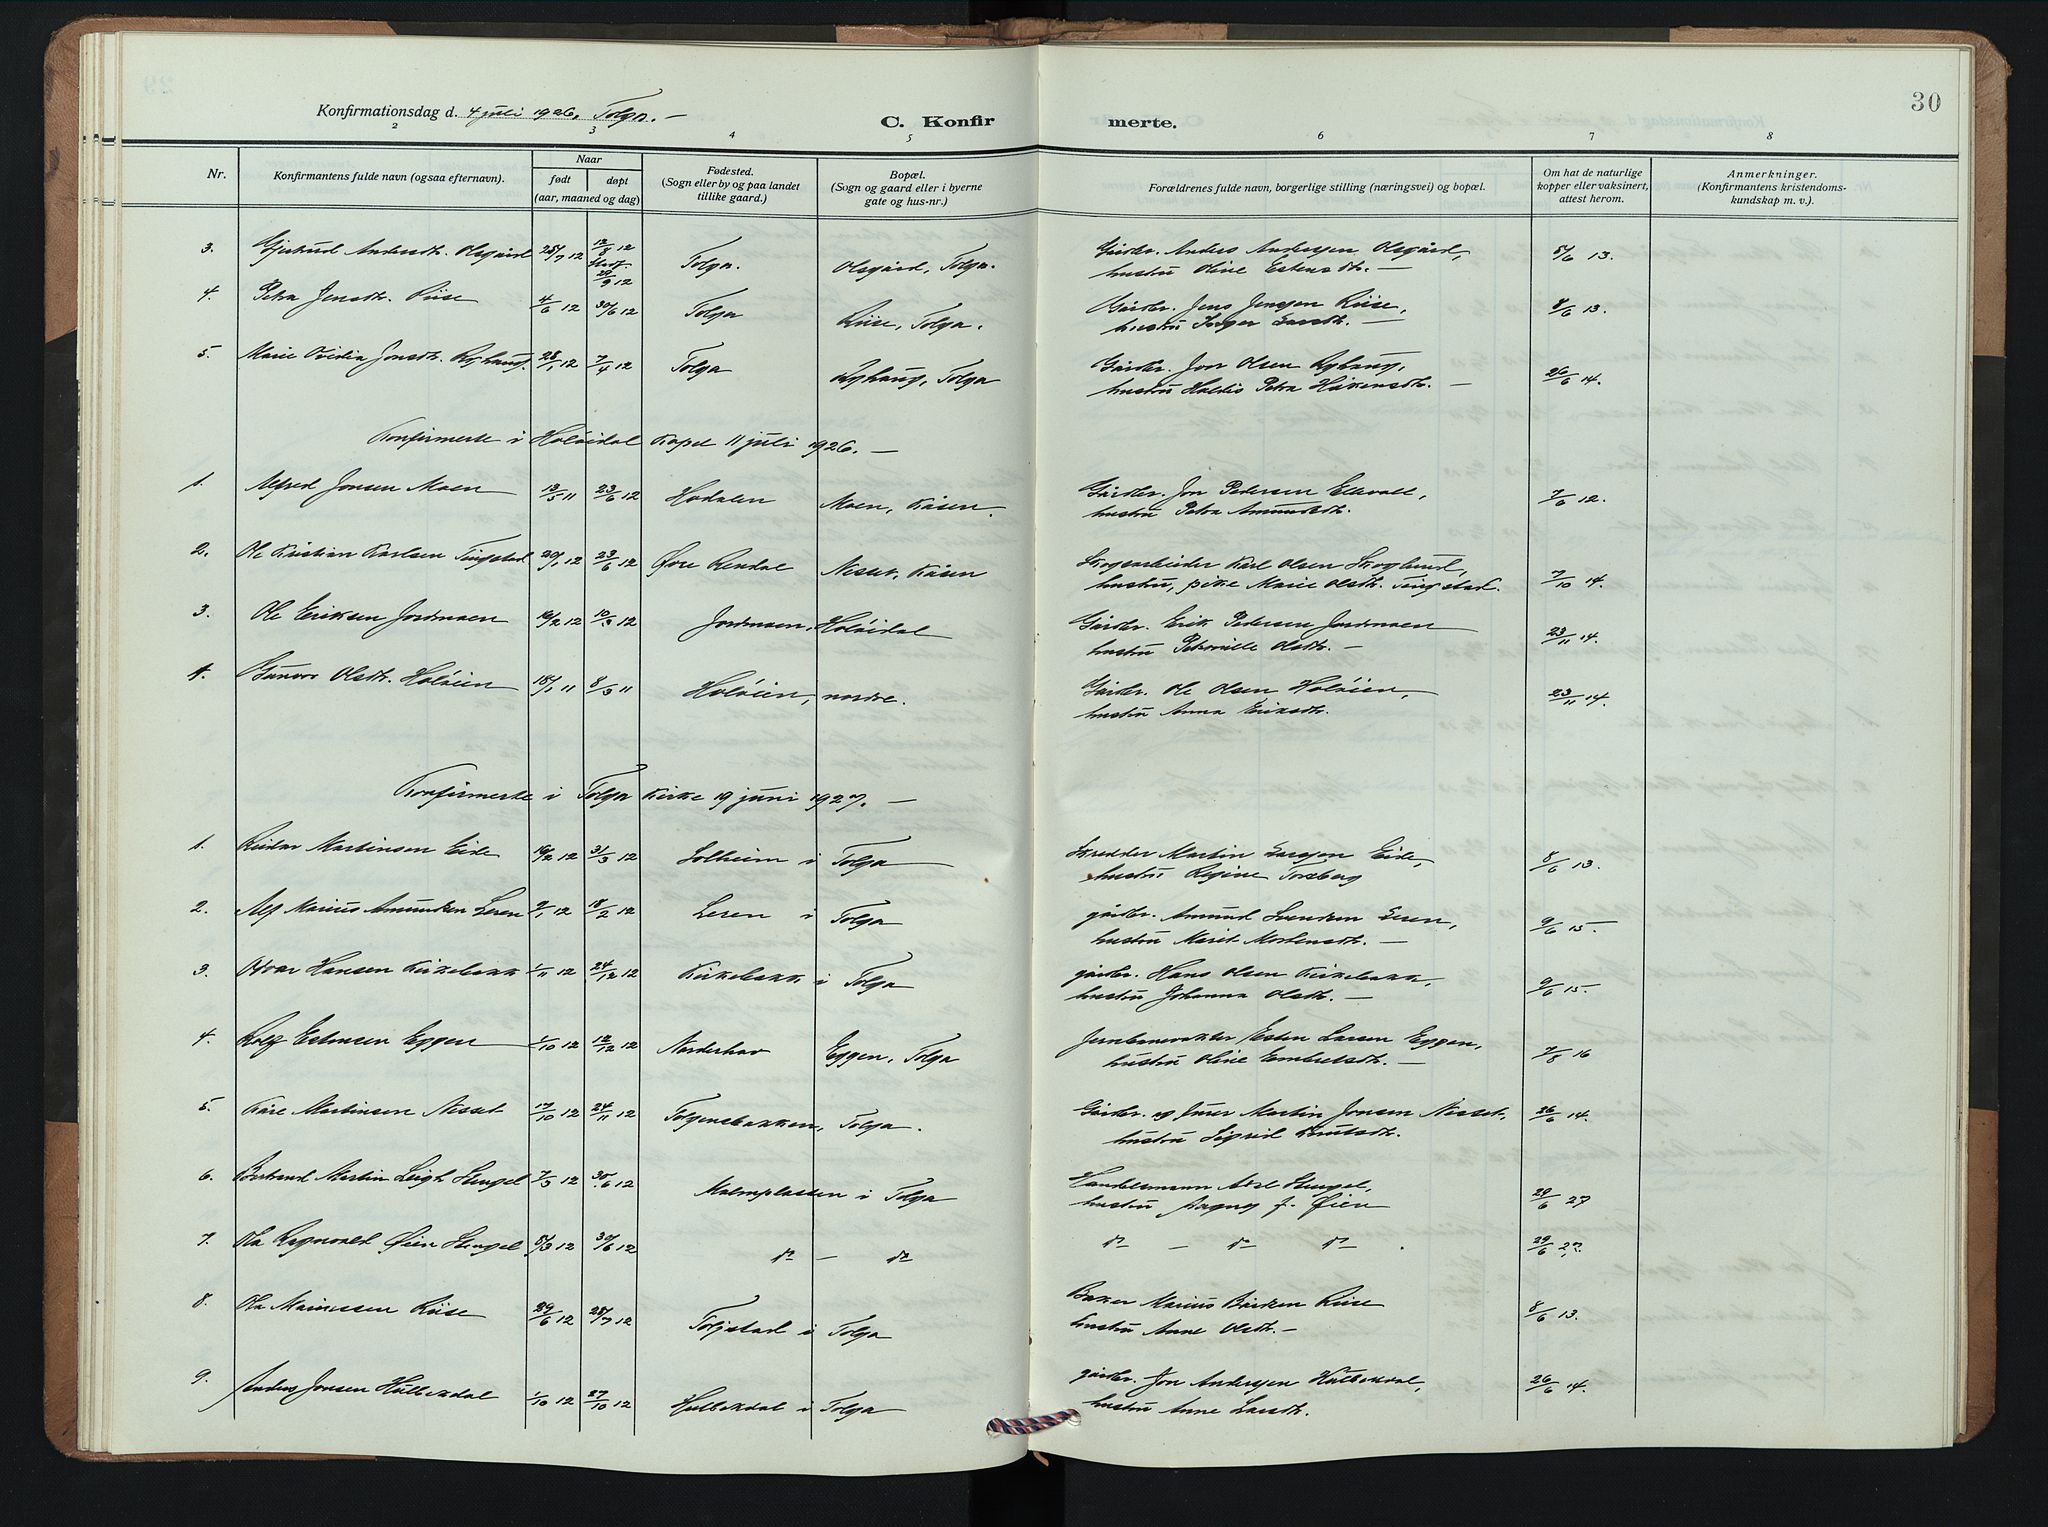 30
Konfirmationsdag d. 4 juli 1926, Tolga. —
C. Konfirmerte.
2 3 4 5 6 7 8
Nr. Konfirmantens fulde navn (ogsaa efternavn). Naar født døpt (aar, maaned og dag) Fødested. (Sogn eller by og paa landet tillike gaard.) Bopæl. (Sogn og gaard eller i byerne gate og hus-nr.) Forældrenes fulde navn, borgerlige stilling (næringsvei) og bopæl. Om hat de naturlige kopper eller vaksinert, attest herom. Anmerkninger. (Konfirmantens kristendomskundskap m. v.).
3. Gjertrud Andersdtr. Olsgård 25/7 12 12/8 12 Stadf. 29/9 12 Tolga. Olsgård, Tolga. Gårdbr. Anders Andersen Olsgård, hustru Oline Estensdtr. — 5/6 13.
4. Petra Jensdtr. Riise 4/6 12 30/6 12 Tolga Riise, Tolga. Gårdbr. Jens Jensen Riise, hustru Inger Larsdtr. — 8/6 13.
5. Marie Ovidia Jonsdtr. Ryhaug. 28/1 12 7/4 12 Tolga Ryhaug, Tolga Gårdbr. Jon Olsen Ryhaug, hustru Haldis Petra Håkensdtr. — 26/6 14.
Konfirmerte i Holøidal Kapel 11 juli 1926. —
1. Alfred Jonsen Moen 13/5 11 23/6 12 Hodalen Moen, Kåsen. Gårdbr. Jon Pedersen Ellevoll, hustru Petra Amundsdtr. 7/6 12.
2. Ole Kristian Karlsen Tingstad 20/1 12 23/6 12 Øvre Rendal Nesset, Kåsen Skogsarbeider Karl Olsen Skoglund, hustru, pike Marie Olsdtr. Tingstad. 7/10 14.
3. Ole Eriksen Jordmoen 16/2 12 10/3 12 Jordmoen, Holøidal Gårdbr. Erik Pedersen Jordmoen hustru Petronille Olsdtr. — 23/11 14.
4. Gunvor Olsdtr. Holøien 18/1 11 8/3 11 Holøien, nordre. Gårdbr. Ole Olsen Holøien, hustru Anna Eriksdtr. 23/11 14.
Konfirmerte i Tolga Kirke 19 juni 1927. —
1. Reidar Martinsen Eide 16/2 12 31/3 12 Solheim i Tolga Skredder Martin Larsen Eide, hustru Regine Torsberg 8/6 13.
2. Alf Marius Amundsen Leren 9/1 12 18/2 12 Leren i Tolga gårdbr. Amund Svendsen Leren, hustru Marit Mortensdtr. — 9/6 15.
3. Otvar Hansen Kirkebakk 1/11 12 24/12 12 Kirkebakk i Tolga gårdbr. Hans Olsen Kirkebakk, hustru Johanna Olsdtr. — 9/6 15.
4. Rolf Estensen Eggen 1/10 12 12/12 12 Norderhov Eggen, Tolga Jernbanevokter Esten Larsen Eggen, hustru Oline Embretsdtr. — 7/8 16
5. Kåre Martinsen Nesset 17/10 12 24/11 12 Tolgensbakken, Tolga. Gårdbr. og Murer Martin Jonsen Nesset, hustru Sigrid Knutsdtr. 26/6 14.
6. Bertrand Martin Leigh Stengel 7/3 12 30/6 12 Malmplassen i Tolga Handelsmann Axel Stengel, hustru Magny f. Øien 29/6 27
7. Ola Ragnvald Øien Stengel 5/3 12 30/6 12 do — do do — do do . 29/6 27.
8. Ola Mariussen Riise 29/6 12 28/7 12 Toljstad i Tolga Baker Marius Bårdsen Riise hustru Anne Olsdtr. — 8/6 13.
9. Anders Jonsen Hulbekdal 1/10 12 27/10 12 Hulbekdal i Tolga gårdbr. Jon Andersen Hulbekdal, hustru Anne Larsdtr. 26/6 14.